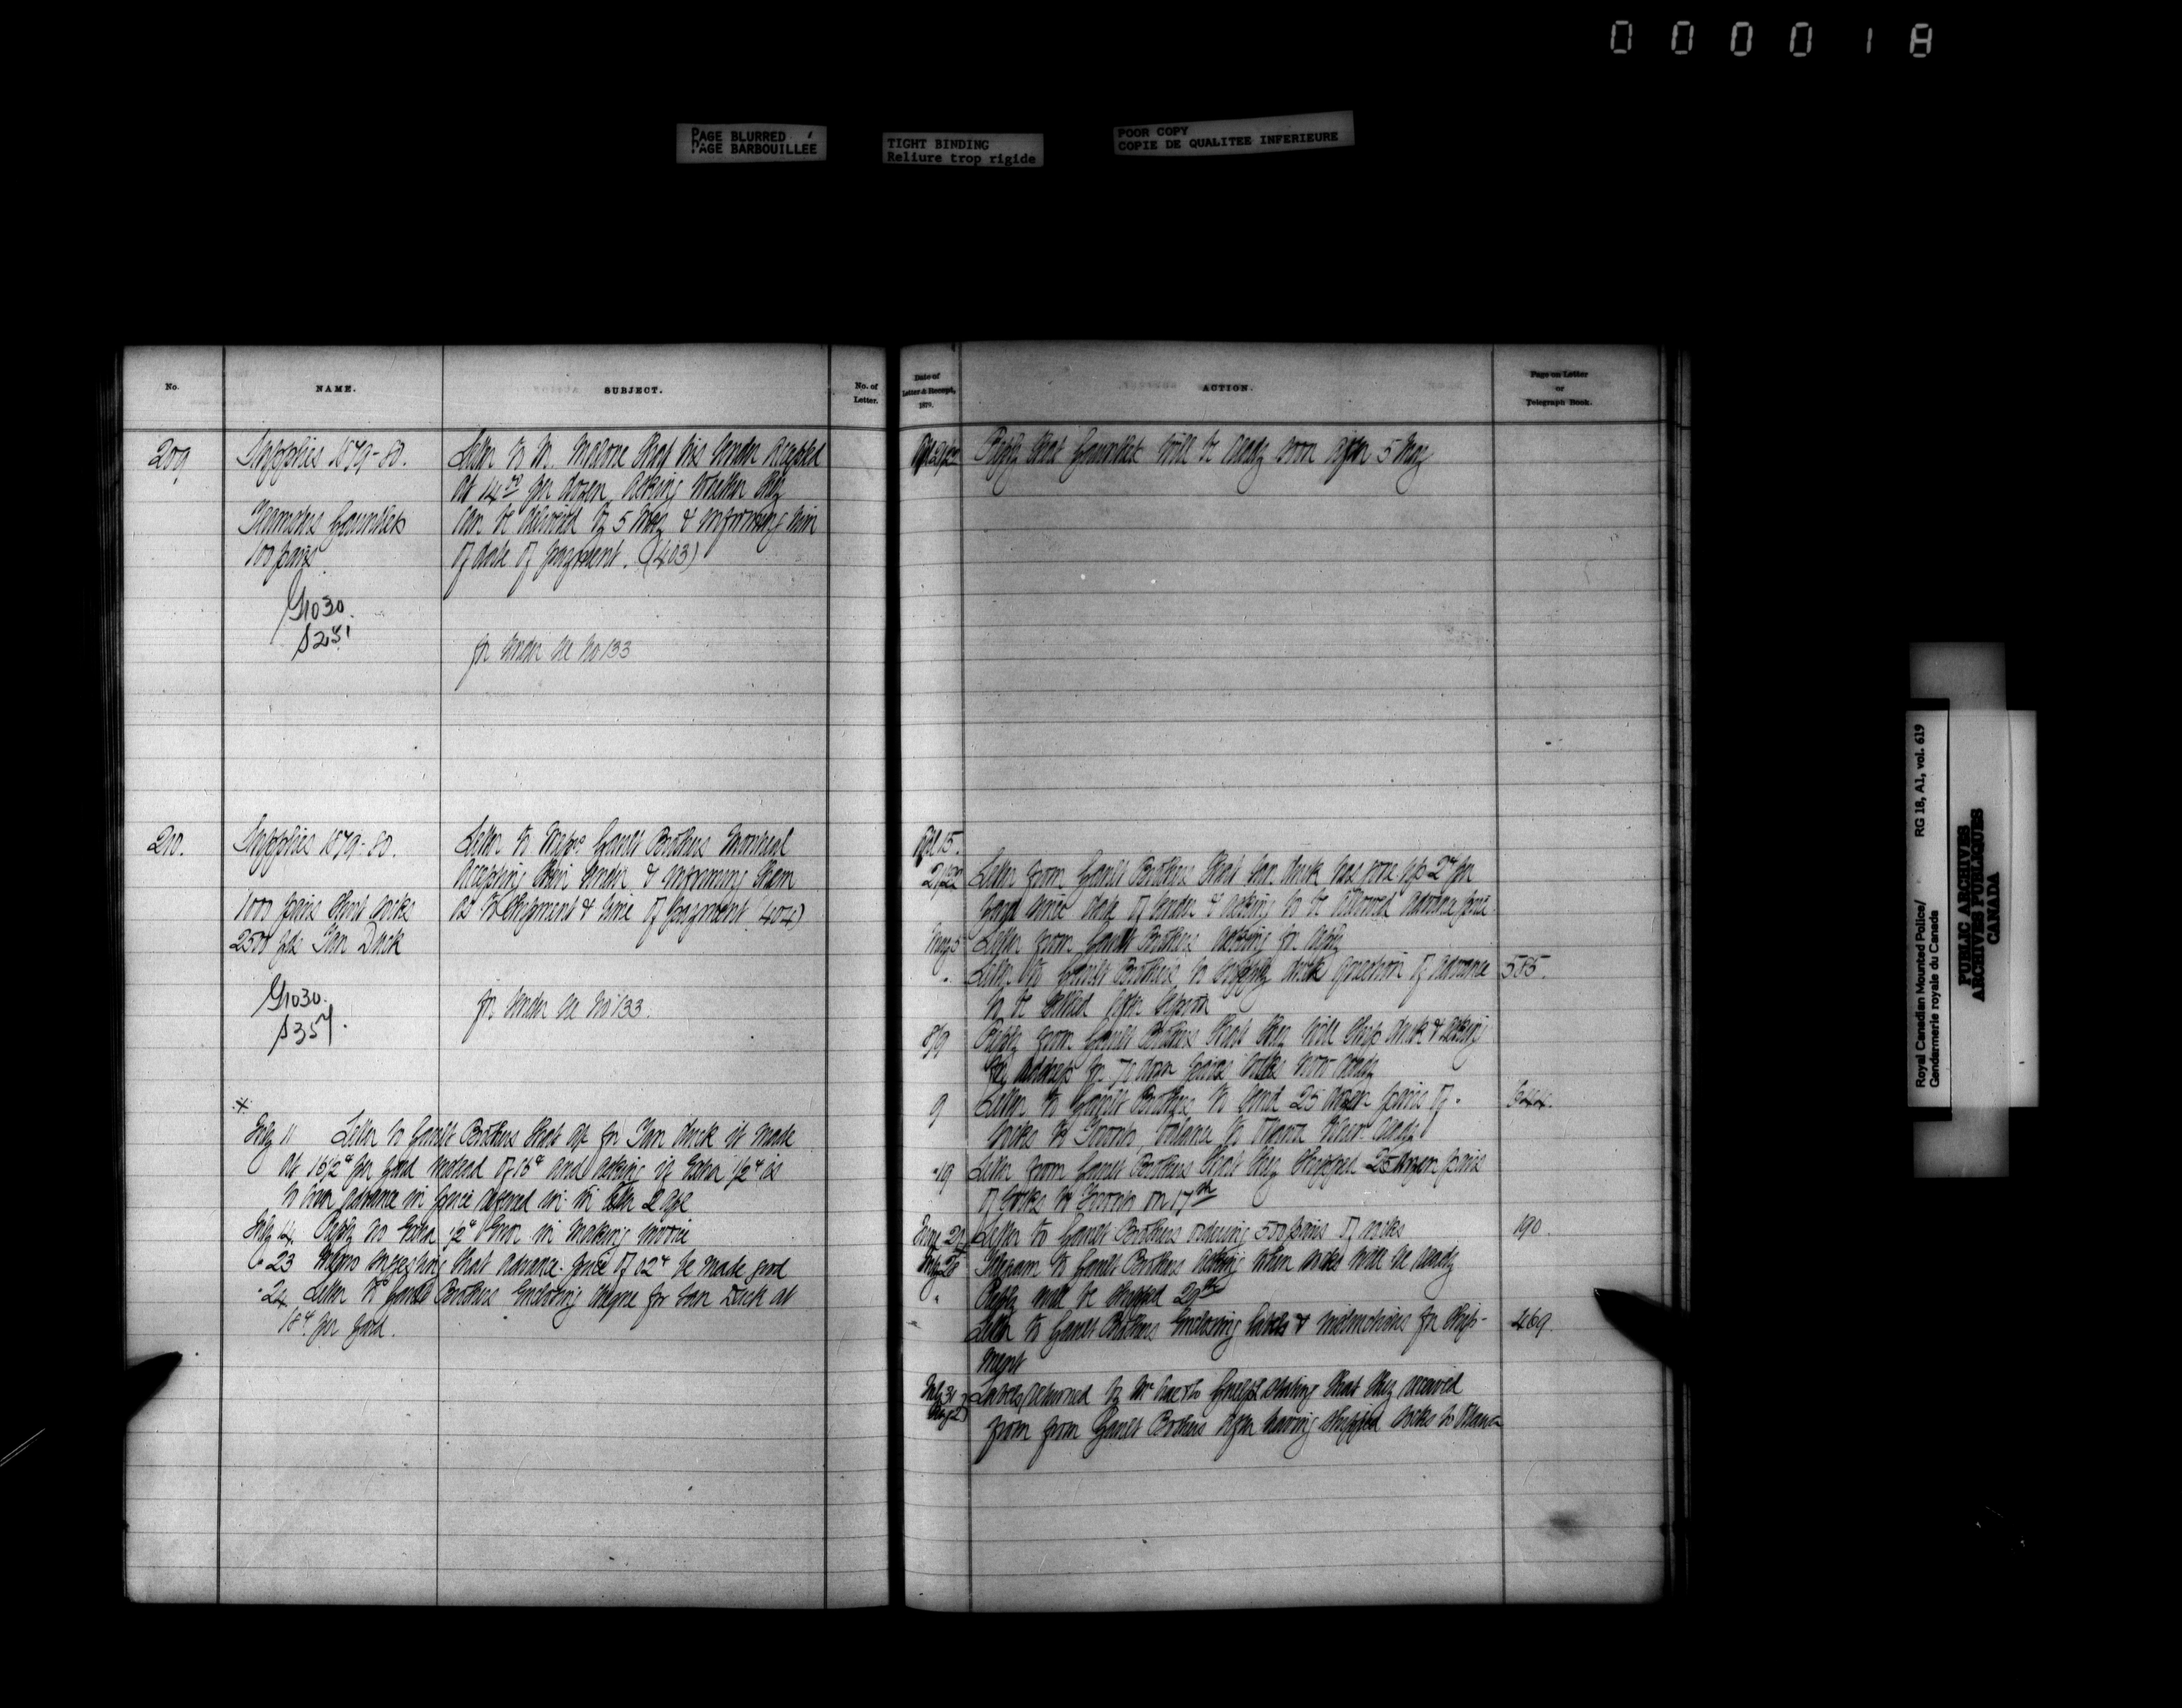 000018
PAGE BLURRED
PAGE BARBOUILLÉE
TIGHT BINDING
Reliure trop rigide
POOR COPY
COPIE DE QUALITEE INFERIEURE
No.
NAME.
SUBJECT.
No. of
Letter.
209
Supplies 1879-80.
Teamsters Gauntlets
100 pairs
G1030.
Letter to M. Malone that his tender accepted
at 14.00 per dozen asking whether they
can be delivered by 5 May & informing him
of date of payment. (403)
for tender see No 133
210.
Supplies 1879-80.
1000 pairs Short socks
2500 yds Tan Duck
G1030.
S357.
Letter to Messrs Gault Brothers Montreal
accepting their tender & informing them
as to shipment & time of payment (404)
for tender see No 133.
July 11 Letter to Gault Brothers that a/c for Tan Duck is made
at 18½ c per yard instead of 18c and asking if extra ½ c is
to cover advance in price referred to in letter 2 Apl
July 14. Reply no extra ½ c error in making invoice
" 23 Memo suggesting that advance price of 02c be made good
" 24 Letter to Gault Brothers enclosing cheque for Tan Duck at
18c per yard.
Date of
Letter & Receipt,
1879.
ACTION.
Page on Letter
or
Telegraph Book.
Reply that Gauntlets will be ready soon after 5 May
Apl 15.
21/22 Letter from Gault Brothers that tan duck has gone up 2c per
yard since date of tender & asking to be allowed advance price
May 5 Letter from Gault Brothers asking for reply
" Letter to Gault Brothers to supply duck question of advance 585.
to be settled after
8/9 Reply from Gault Brothers that they will ship duck & asking
for address for 70 dozen pairs socks now ready
9 Letter to Gault Brothers to send 25 dozen pairs of
socks to Toronto balance to Ottawa when ready
" 19 Letter from Gault Brothers that they shipped 25 dozen pairs
of socks to Toronto on 17th
Letter to Gault Brothers ordering 500 pairs of socks 190.
July 28 Telegram to Gault Brothers asking when socks will be ready
" Reply will be shipped 29th
Letter to Gault Brothers enclosing labels & instructions for ship- 469.
ment
July 31
Aug 2 Labels returned by Mr Guelph stating that they received
from from Gault Brothers after having shipped socks to Ottawa
Royal Canadian Mounted Police/
Gendarmerie royale du Canada
RG 18, A1, vol. 619
PUBLIC ARCHIVES
ARCHIVES PUBLIQUES
CANADA